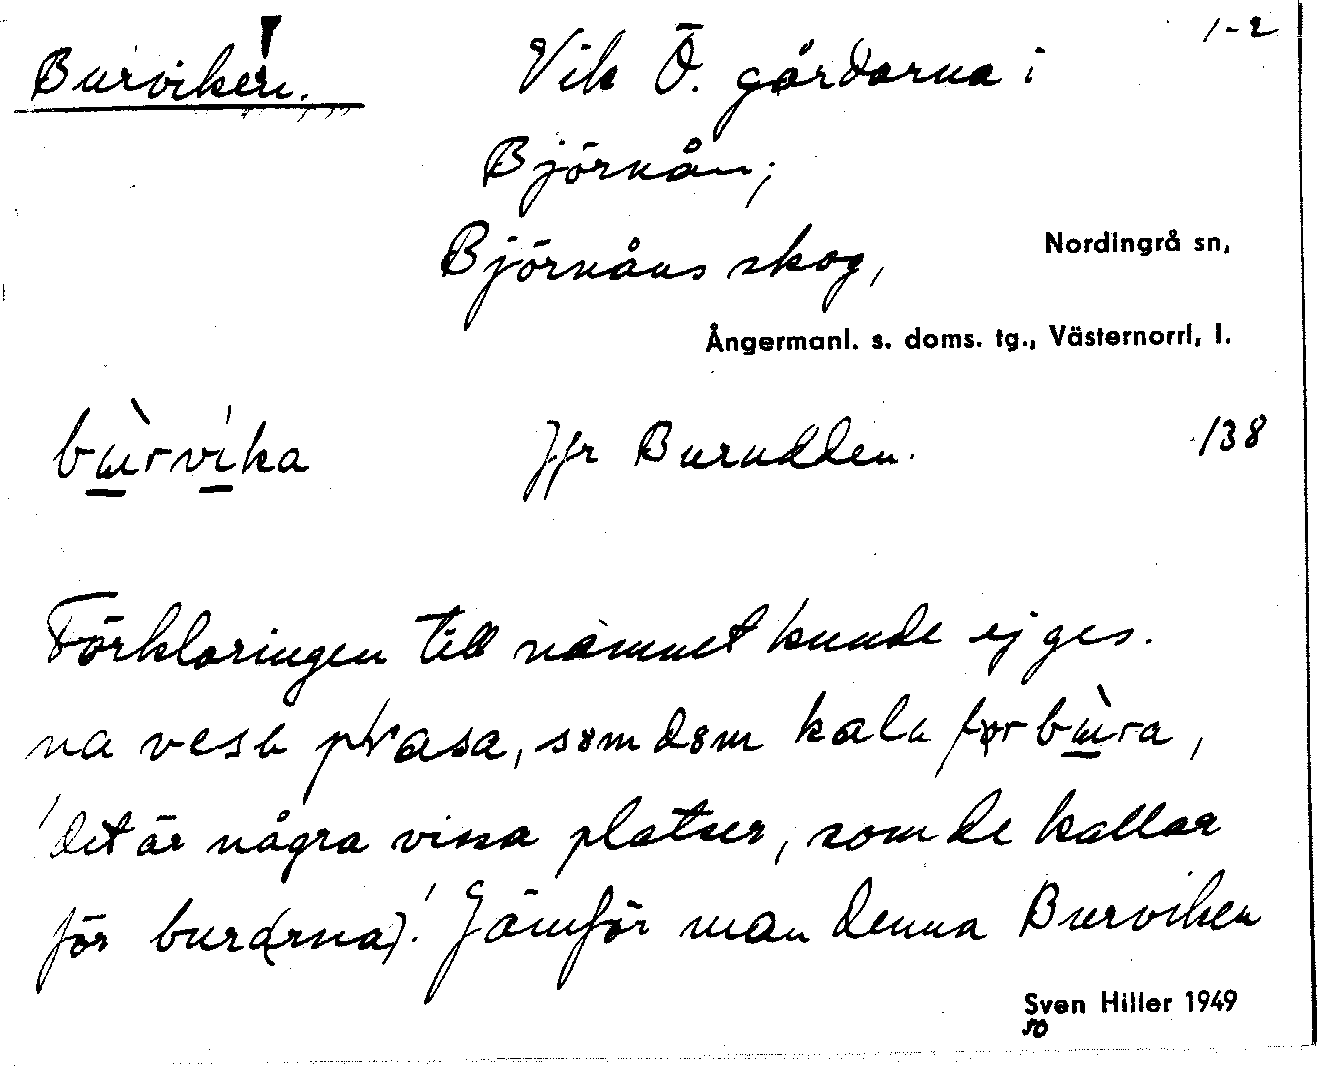 1-2
Burviken. Vik Ö. gårdarna i
Björnån;
Björnåns skog, Nordingrå sn,
Ångermanl. s. doms. tg., Västernorrl, l.
bù̲rvi̲ka Jfr Burudden. 138
Förklaringen till namnet kunde ej ges.
na vesa plasa, som dom kala før bù̲ra,
'det är några vissa platser, som de kallar
för bura(rna).' Jämför man denna Burviken
Sven Hiller 1949
50